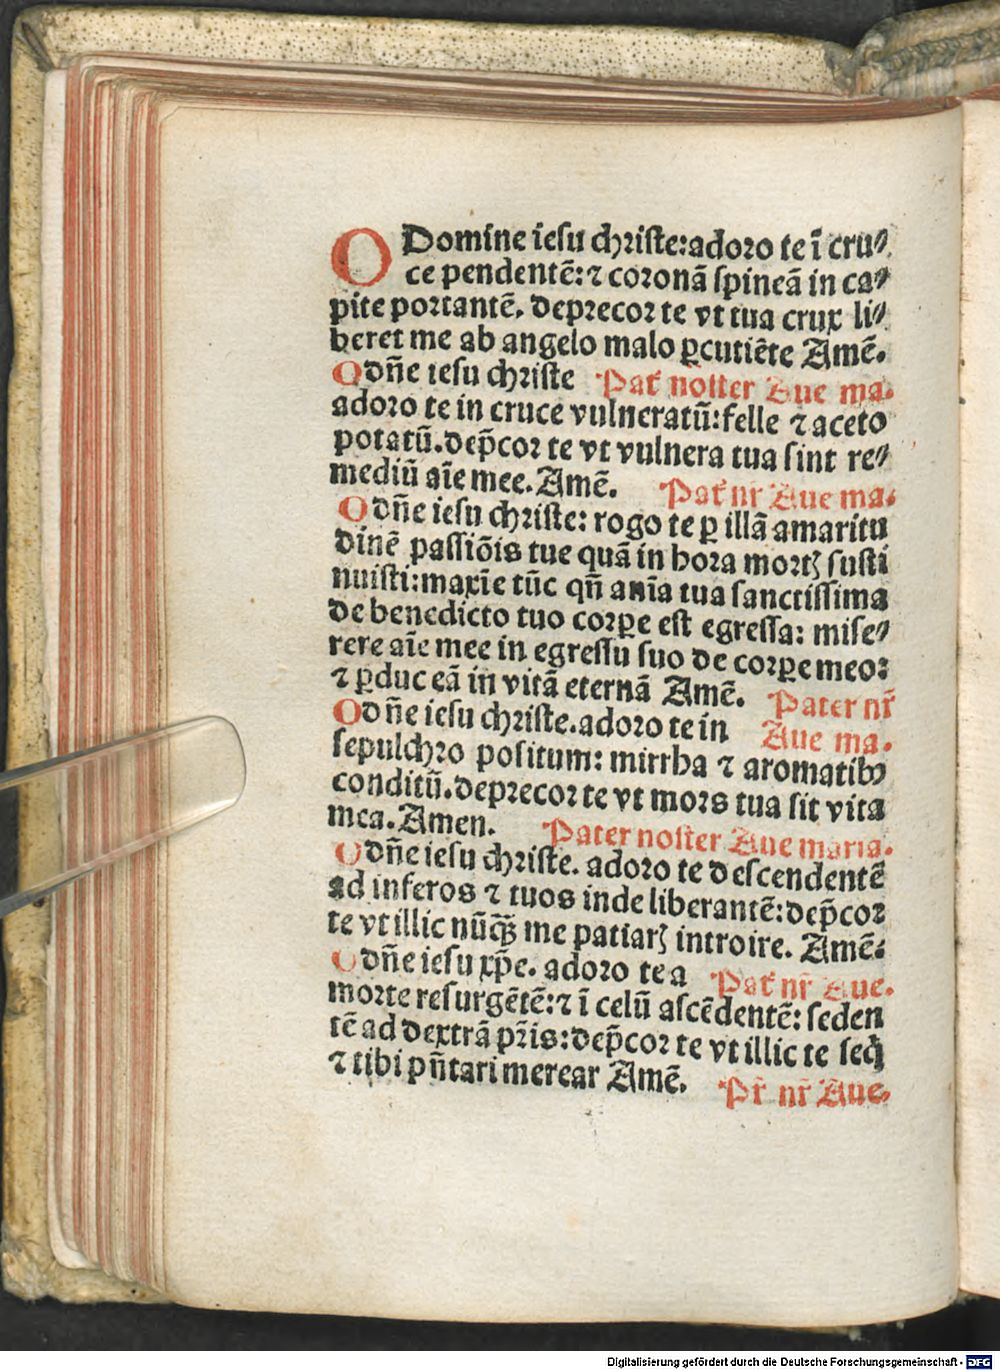 O Domine iesu christe:adoro te ī cru⸗
ce pendentē: ⁊ coronā spineā in ca⸗
pite portantē. deprecor te vt tua crux li⸗
beret me ab angelo malo ꝑcutiēte Amē.
O dn̄e iesu christe Pat̄ noster Aue ma.
adoro te in cruce vulneratū: felle ⁊ aceto
potatū. dep̄cor te vt vulnera tua sint re⸗
mediū aīe mee. Amē. Pat̄ nr̄ Aue ma.
O dn̄e iesu christe: rogo te ꝑ illā amaritu
dinē passiōis tue quā in hora mortꝭ susti
nuisti: maxīe tūc qn̄ anīa tua sanctissima
de benedicto tuo corꝑe est egressa: mise⸗
rere aīe mee in egressu suo de corꝑe meo:
⁊ ꝑduc eā in vitā eternā Amē. Pater nr̄
O dn̄e iesu christe. adoro te in Aue ma.
sepulchro positum: mirrha ⁊ aromatibꝰ
conditū. deprecor te vt mors tua sit vita
mea. Amen. Pater noster Aue maria.
O dn̄e iesu christe. adoro te descendentē
ad inferos ⁊ tuos inde liberantē: dep̄cor
te vt illic nūqꝫ me patiarꝭ introire. Amē.
O dn̄e iesu xp̄e. adoro te a Pat̄ nr̄ Aue.
morte resurgētē: ⁊ ī celū ascēdentē: seden
tē ad dextrā pr̄is: dep̄cor te vt illic te seq̄
⁊ tibi pn̄tari merear Amē. Pr̄ nr̄ Aue.
Digitalisierung gefördert durch die Deutsche Forschungsgemeinschaft - DFG